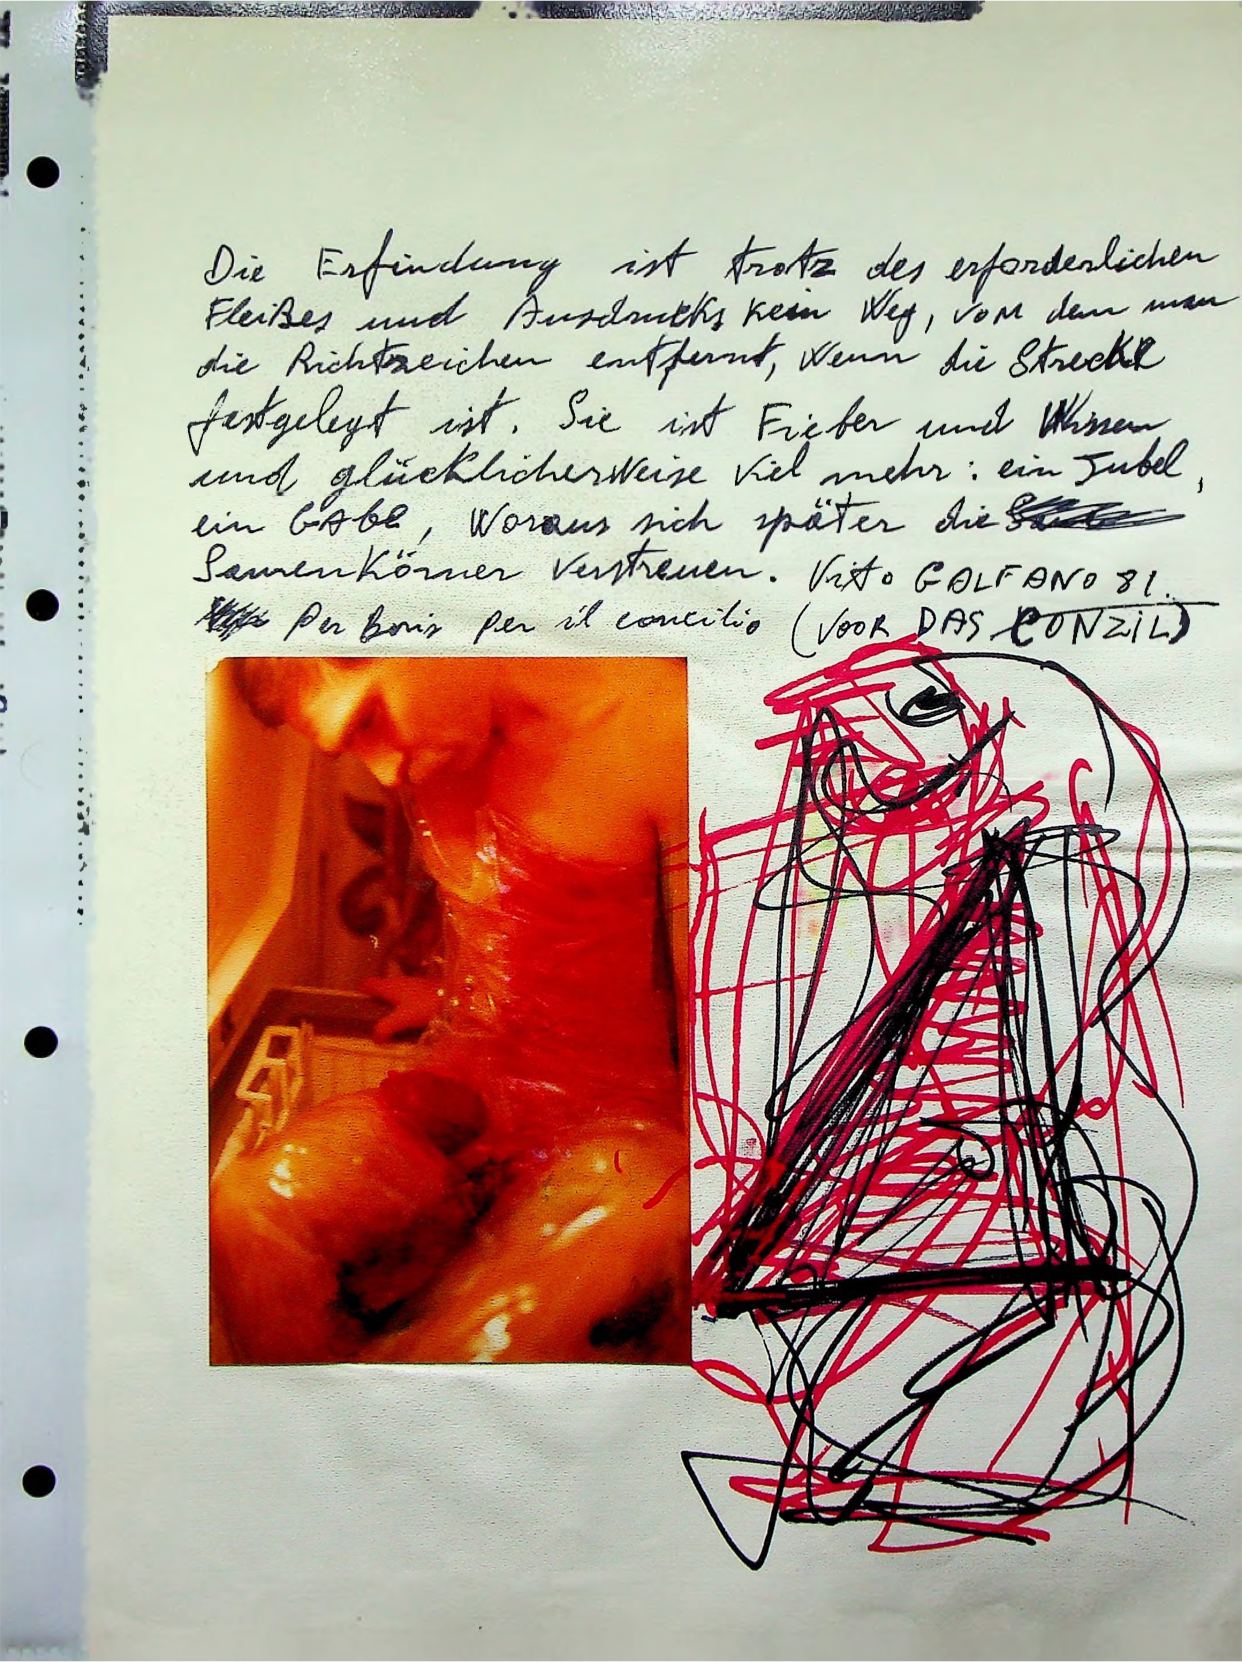 Die Erfindung ist trotz des erforderlichen
Fleißes und Ausdrucks kein Weg, vom dem man
die Richtzeichen entfernt, wenn die Strecke
festgelegt ist. Sie ist Fieber und Wissen
und glücklicherweise viel mehr: ein Jubel,
ein GAbe, Woraus sich später die
SamenKörner verstreuen. Vito GALFANO 81.
Per Boris per il concilio (VOOR DAS CONZIL)